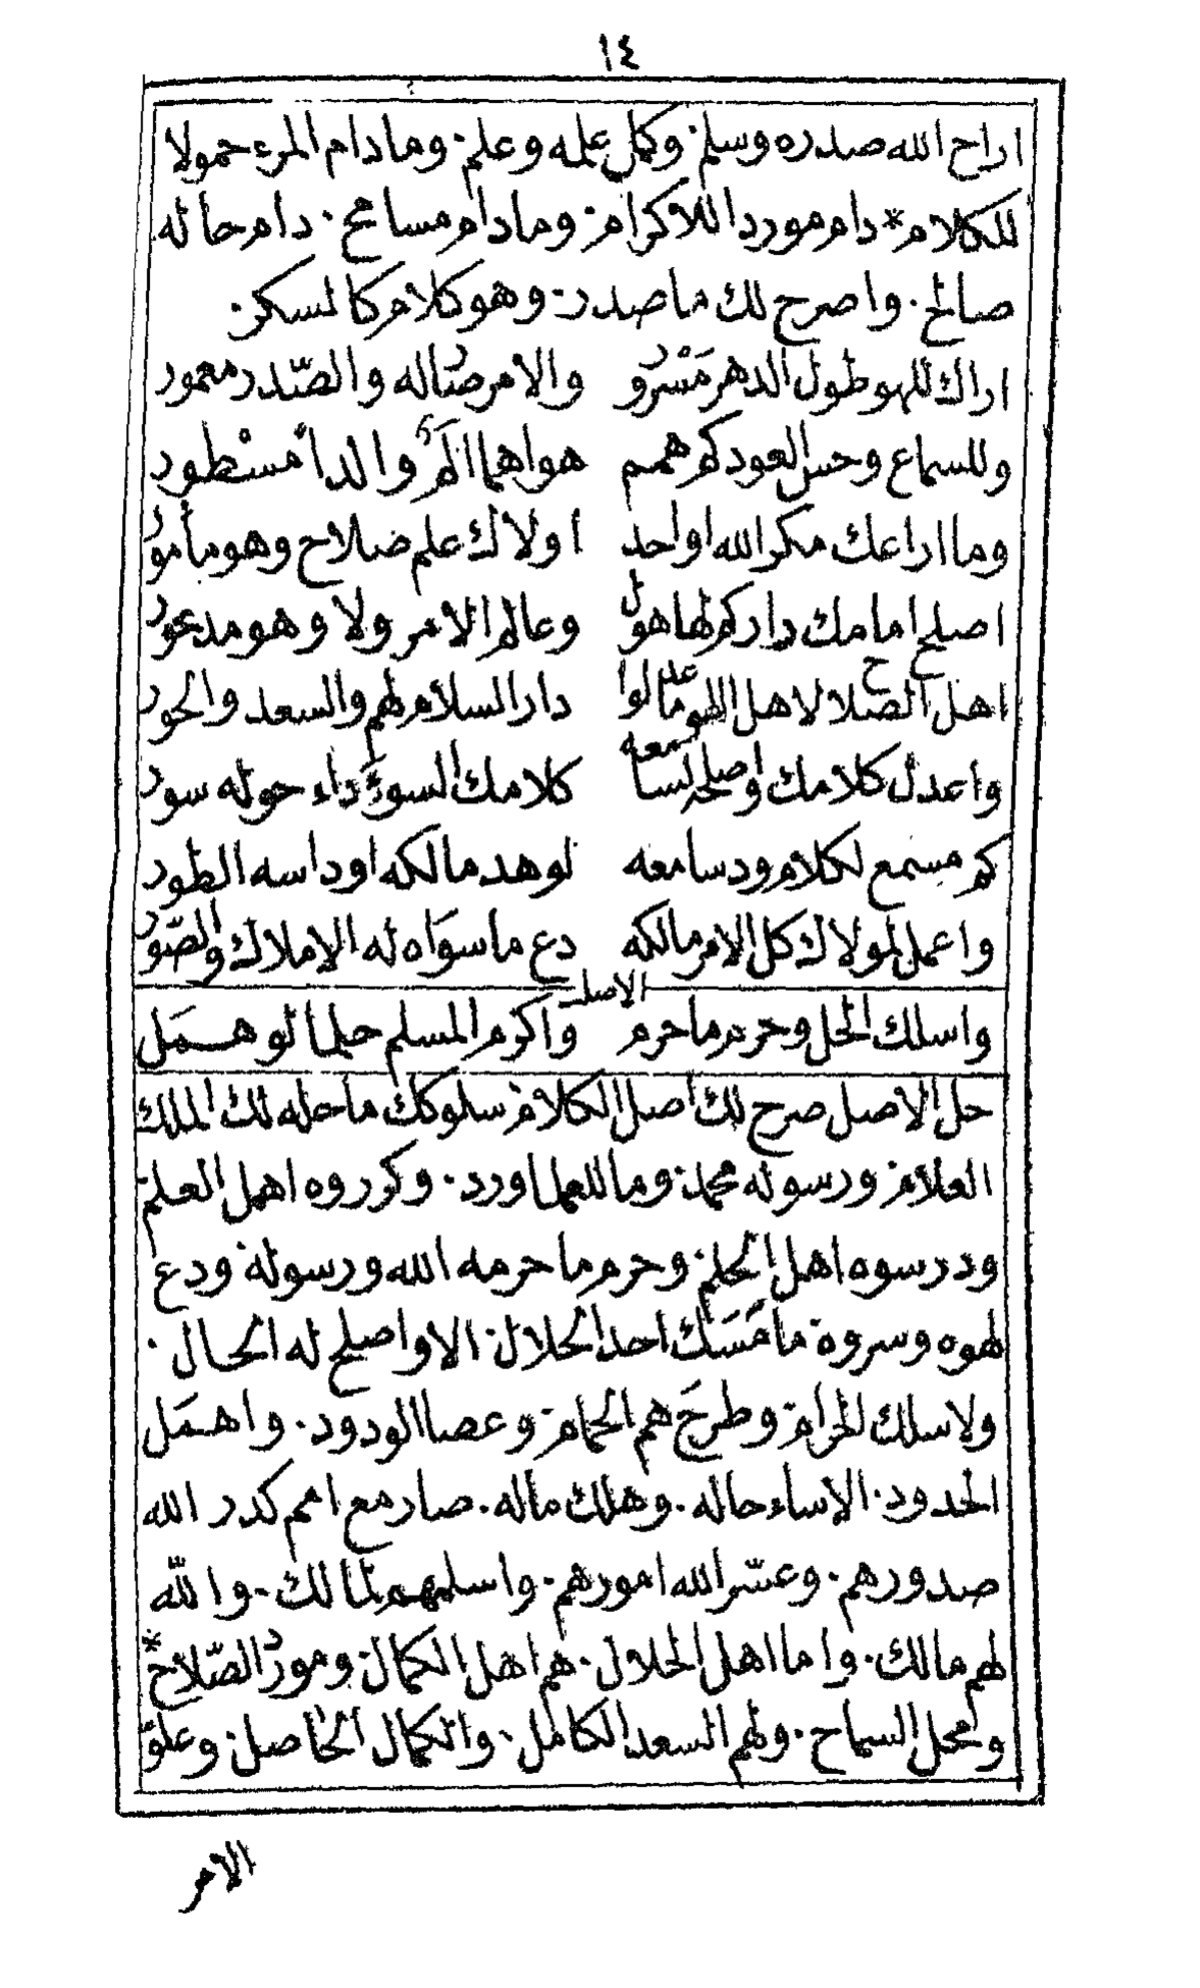 ١٤
اراح الله صدره وسلم. وكمل عمله وعلم. ومادام المرء حمولا
للكلام * دام موردا للاكرام. ومادام مسامح. دام حاله
صالح. واصرح لك ما صدر. وهو كلام كالسكر.
اراك للهو طول الدهر مَسْرور والامر ضاله والصّدر معمور
وللسماع وحس العود كم همم هواهما الَمٌ والدأ مسْطور
وما اراعك مكر الله او احد اولاك علم صلاح وهو مأمور
اصلح امامك دار كم لها هول وعالم الامر ولا وهو مدحور
اهل الصلاح لا هل اللهو ما عدلوا دار السلام لهم والسعد والحور
واعدل كلامك واصلحه لسامعه كلامك السوء داء حوله سور
كم مسمع لكلام ود سامعه لو هد مالكه او داسه الطور
واعمل لمولاك كل الامر مالكه دع ما سوَاه له الاملاك والصّور
الاصل
واسلك الحل وحرم ما حرم واكرم المسلم حلما لو همَل
حل الاصل صرح لك اصل الكلام. سلوكك ما حلله لك الملك
العلام. ورسوله محمد. وما للعلما ورد. وكرروه اهل العلم.
ودرسوه اهل الحلم. وحرم ما حرمه الله ورسوله. ودع
لهوه وسروه. ما مَسَك احد الحلال. الا واصلح له الحال.
ولا سلك الحرام. وطرحَ هم الحمام. وعصا الودود. واهمَل
الحدود. الا ساء حاله. وهلك ماله. صار مع امم كدر الله
صدورهم. وعسّر الله امورهم. واسلمهم لمالك. والله
لهم مالك. واما اهل الحلال. هم اهل الكمال. ومورد الصّلاح *
ومحل السماح. ولهم السعد الكامل. والكمال الحاصل. وعلوّ
الامر